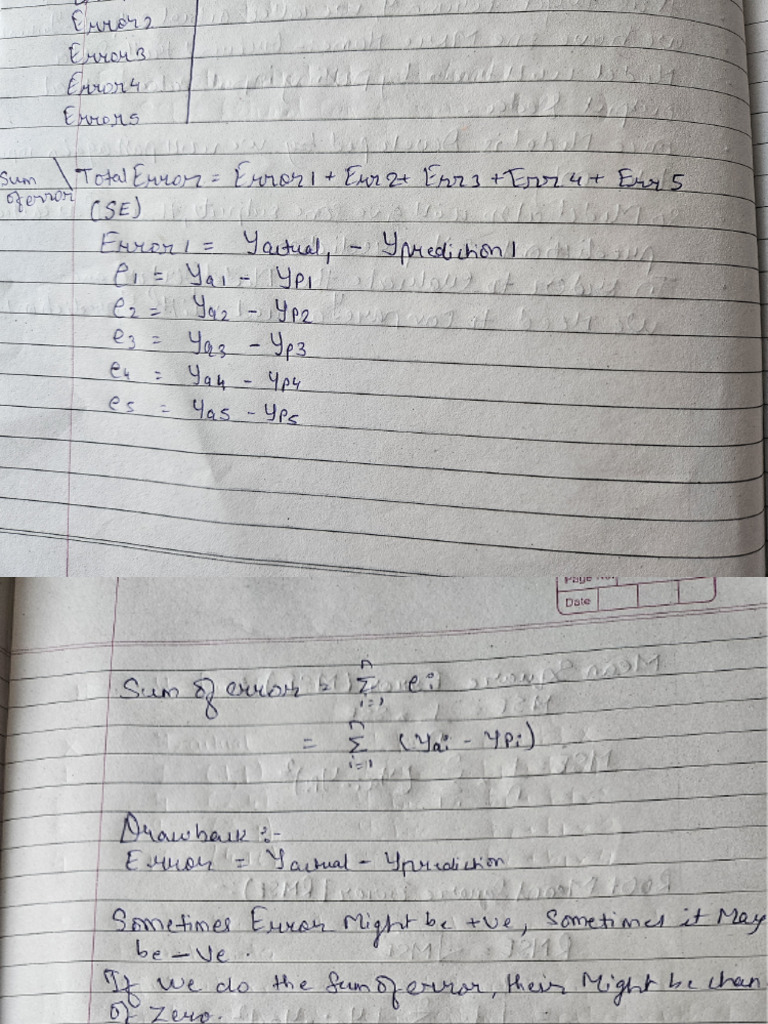 Error2
Error3
Error4
Error5
Sum of error
Total Error = Error1 + Err2 + Err3 + Err4 + Err5
(SE)
Error1 = Yactual1 - Yprediction1
e1 = Ya1 - Yp1
e2 = Ya2 - Yp2
e3 = Ya3 - Yp3
e4 = Ya4 - Yp4
e5 = Ya5 - Yp5
Page No.
Date
Sum of error = n Σ i=1 ei
= n Σ i=1 (Yai - Ypi)
Drawback :-
Error = Yactual - Yprediction
Sometimes Error Might be +ve, Sometimes it May
be -ve.
If we do the Sum of error, their Might be chan
of Zero.